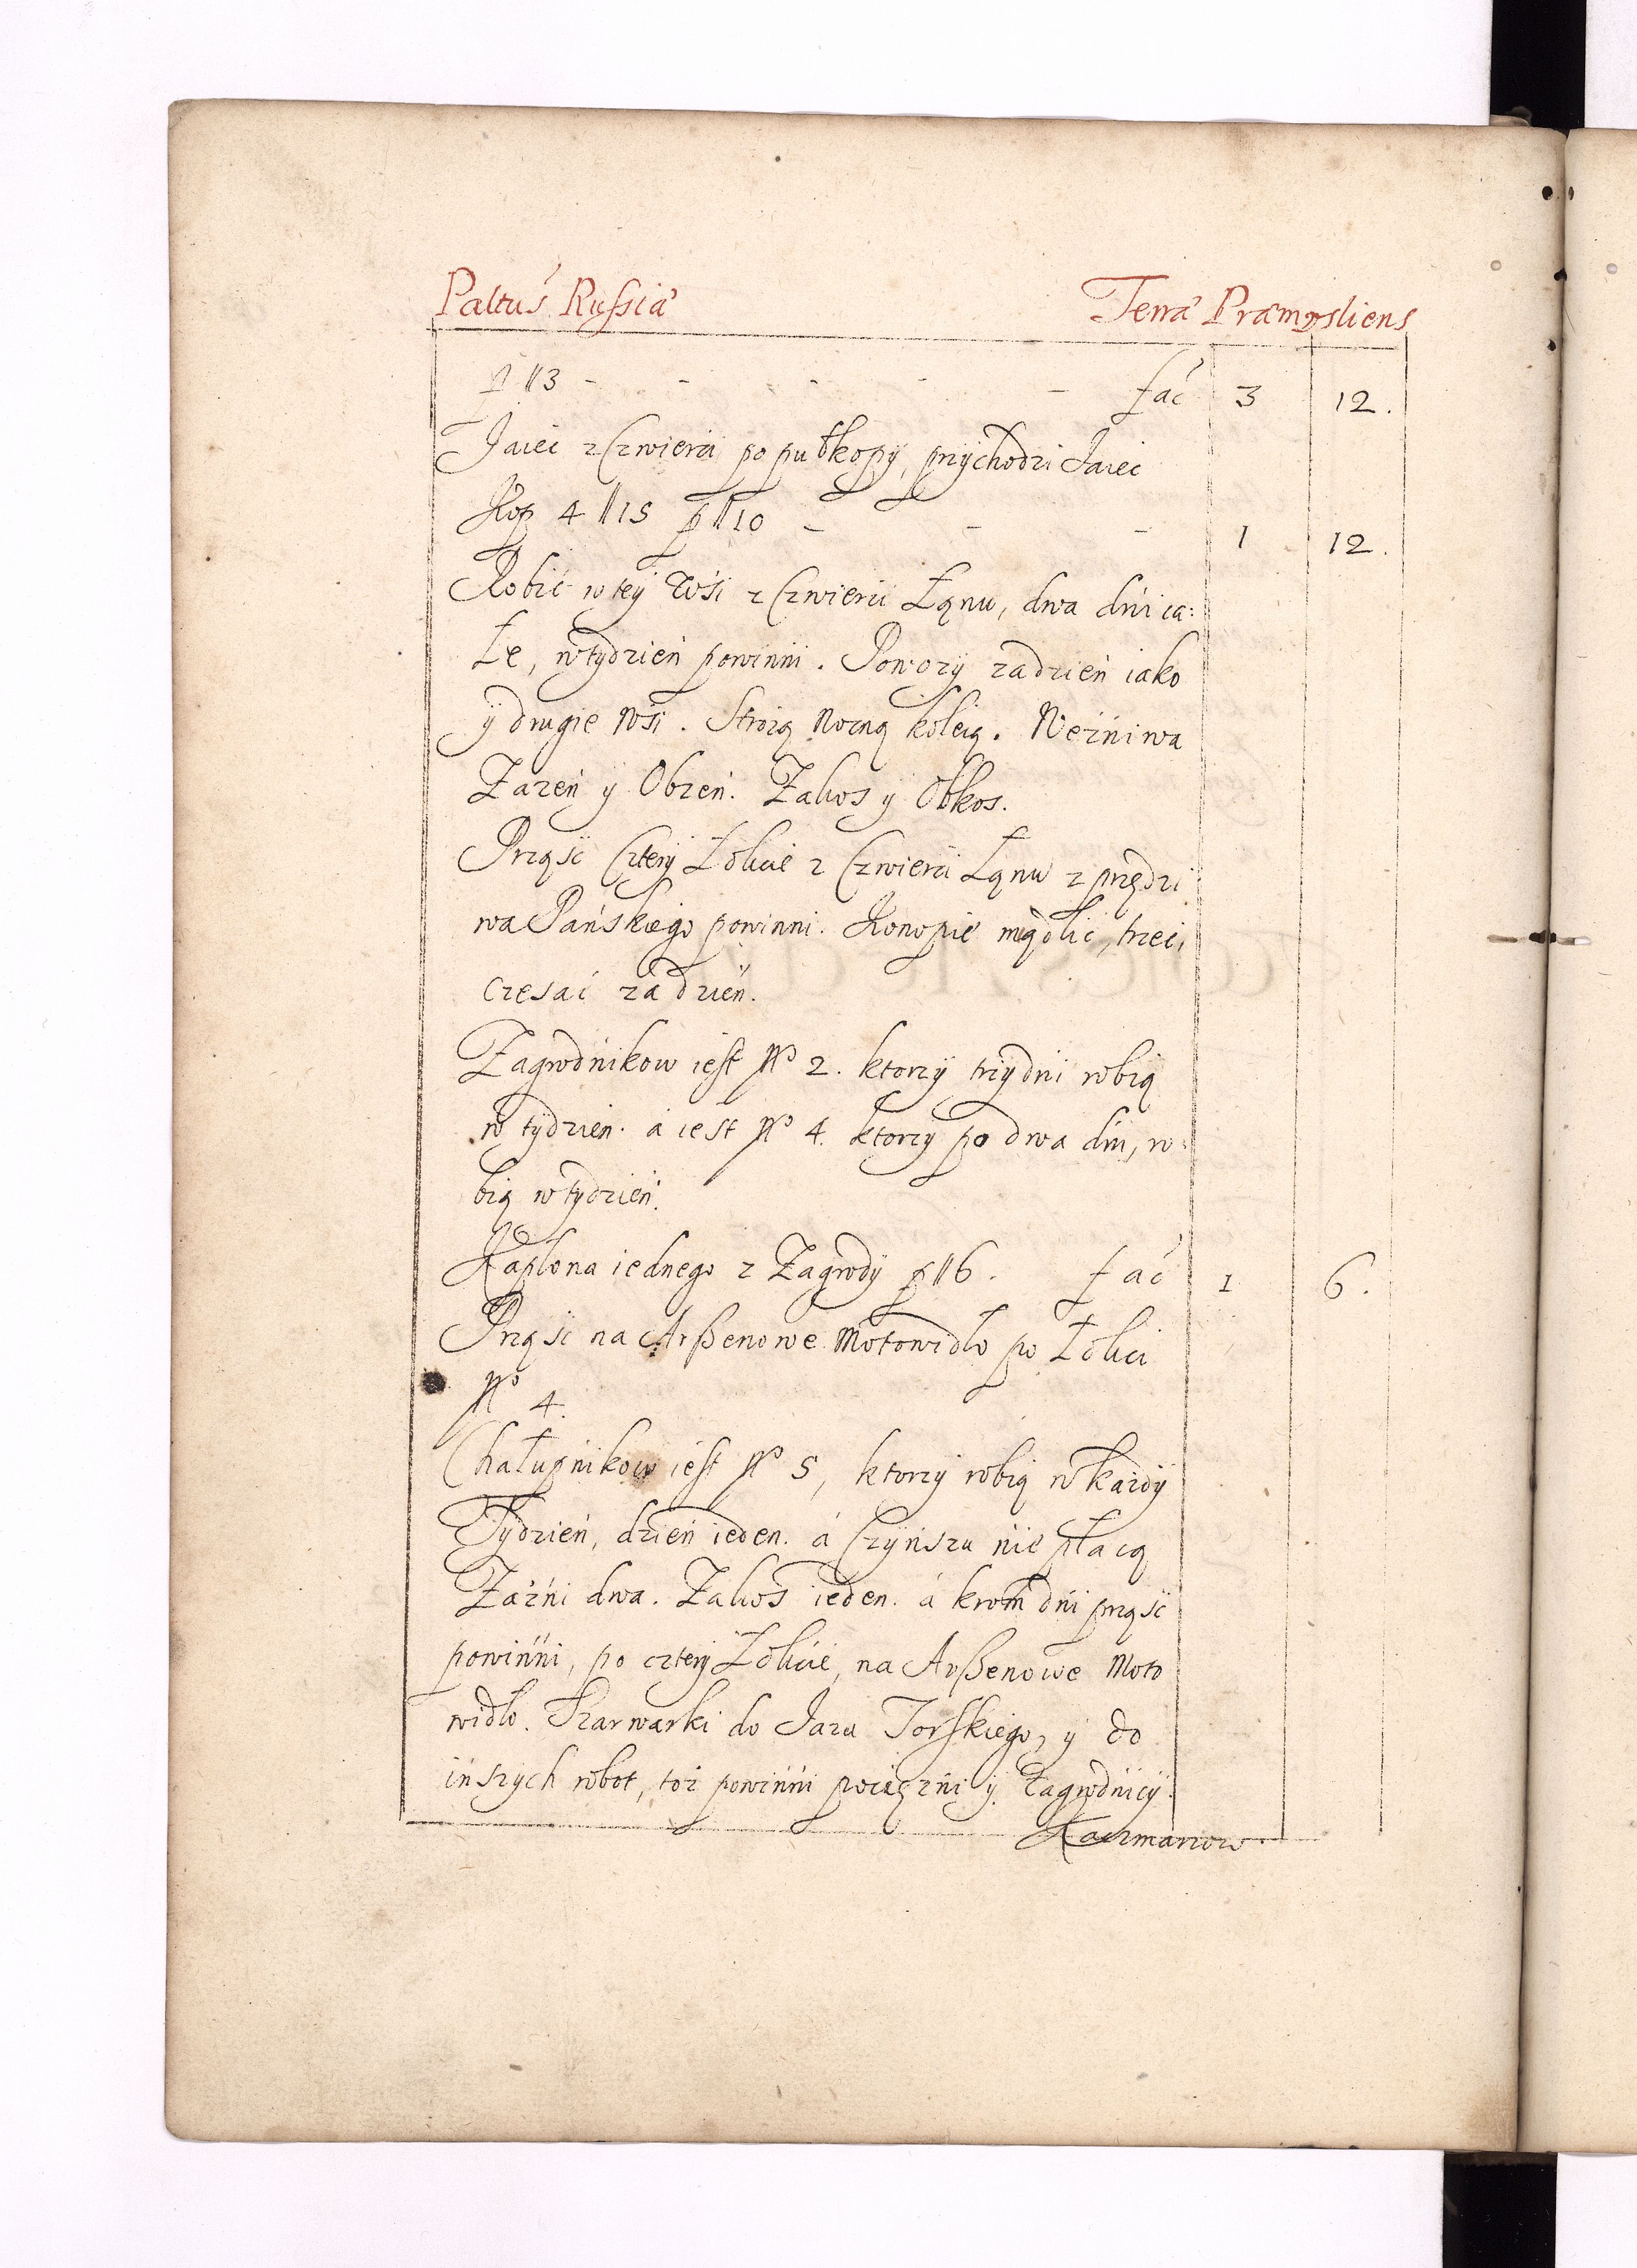 Paltus Russiæ Terræ Præmysliens
p ǁ 3 - - - - - fać 3 12.
Jaiec z Czwierci po pułkopy, przychodzi Jaiec
Kop 4 ǁ 15 p ǁ 10 - - - 1 12.
Robić w tey Wsi z Czwierci Łanu, dwa dni ca:
Łe, w tydzień powinni. Powozy zadzień iako
ÿ drugie Wsi. Strożą Nocną koleią. We żniwa
Zażeń ÿ Obżeń. Zakos ÿ Obkos.
Prząść Cztery Łokcie z Czwierci Łanu z przędzi
wa Pańskiego powinni. Konopie mądlić, trzeć,
czesać za dzień.
Zagrodnikow iest No 2. ktorzÿ trzÿ dni robią
w tÿdzień. á iest No 4. ktorzy po dwa dni, ro:
bią w tydzień.
Kapłona iednego z Zagrodÿ p ǁ 6. fać 1 6.
Prząść na Arßenowe Motowidło po Łokci
No 4.
Chałupnikow iest No 5, ktorzÿ robią w kazdÿ
Tÿdzień, dzień ieden. á Czÿnszu nie płacą
Zażni dwa. Zakos ieden. á krom dni prząść
powinni, po czterÿ Łokcie, na Arßenowe Moto
widło. Szarwarki do Jazu Torskiego, ÿ do
inszych robot, toż powinni pociężni ÿ Zagrodnicÿ.
Kaczmarzow